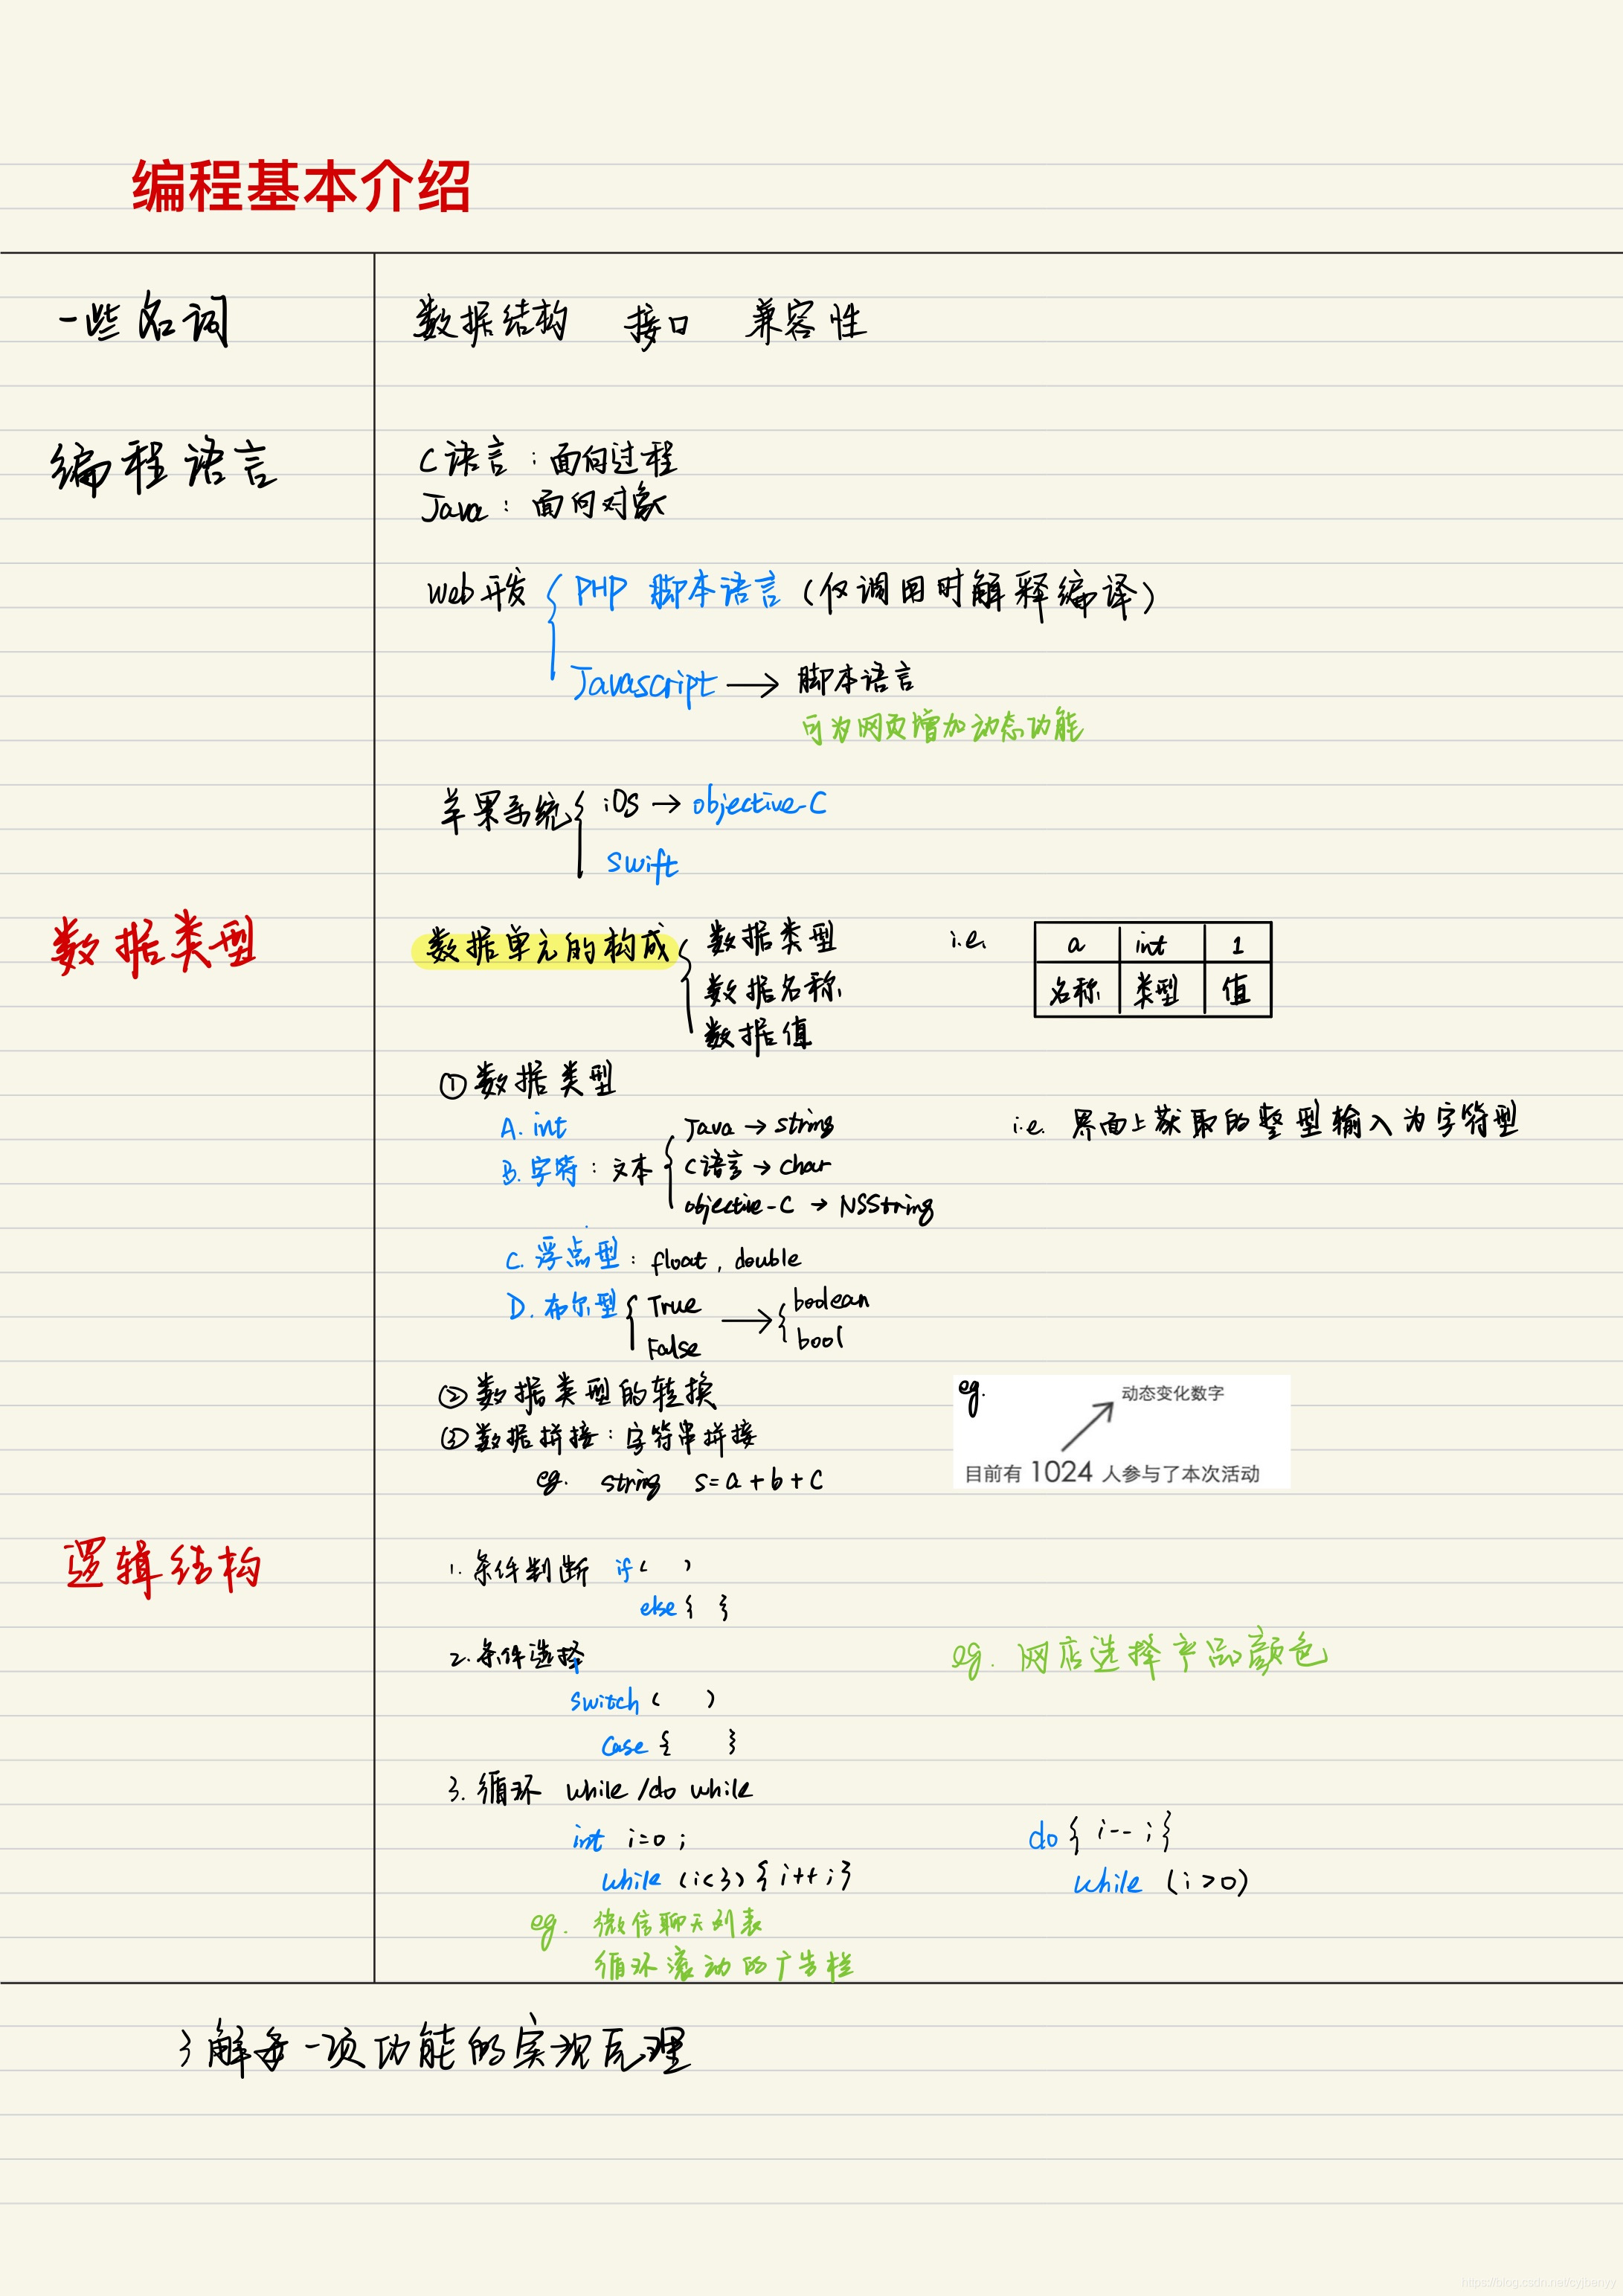 编程基本介绍
一些名词
数据结构 接口 兼容性
编程语言
C语言：面向过程
Java：面向对象
Web开发 { PHP 脚本语言（仅调用时解释编译）
Javascript → 脚本语言
可为网页增加动态功能
苹果系统 { iOS → objective-C
swift
数据类型
数据单元的构成 { 数据类型
数据名称
数据值
i.e. a int 1
名称 类型 值
① 数据类型
A. int
B. 字符：文本 { Java → string
C语言 → char
objective-C → NSString
i.e. 界面上获取的整型输入为字符型
C. 浮点型：float, double
D. 布尔型 { True → { boolean
False bool
② 数据类型的转换
③ 数据拼接：字符串拼接
eg. string s=a+b+c
eg. 动态变化数字
目前有 1024 人参与了本次活动
逻辑结构
1. 条件判断 if ( )
else { }
2. 条件选择
eg. 网店选择产品颜色
switch ( )
case { }
3. 循环 while /do while
int i=0 ;
while (i<3) { i++ ; }
do { i-- ; }
while (i>0)
eg. 微信聊天列表
循环滚动的广告栏
了解每一项功能的实现原理
https://blog.csdn.net/cyjbanyy